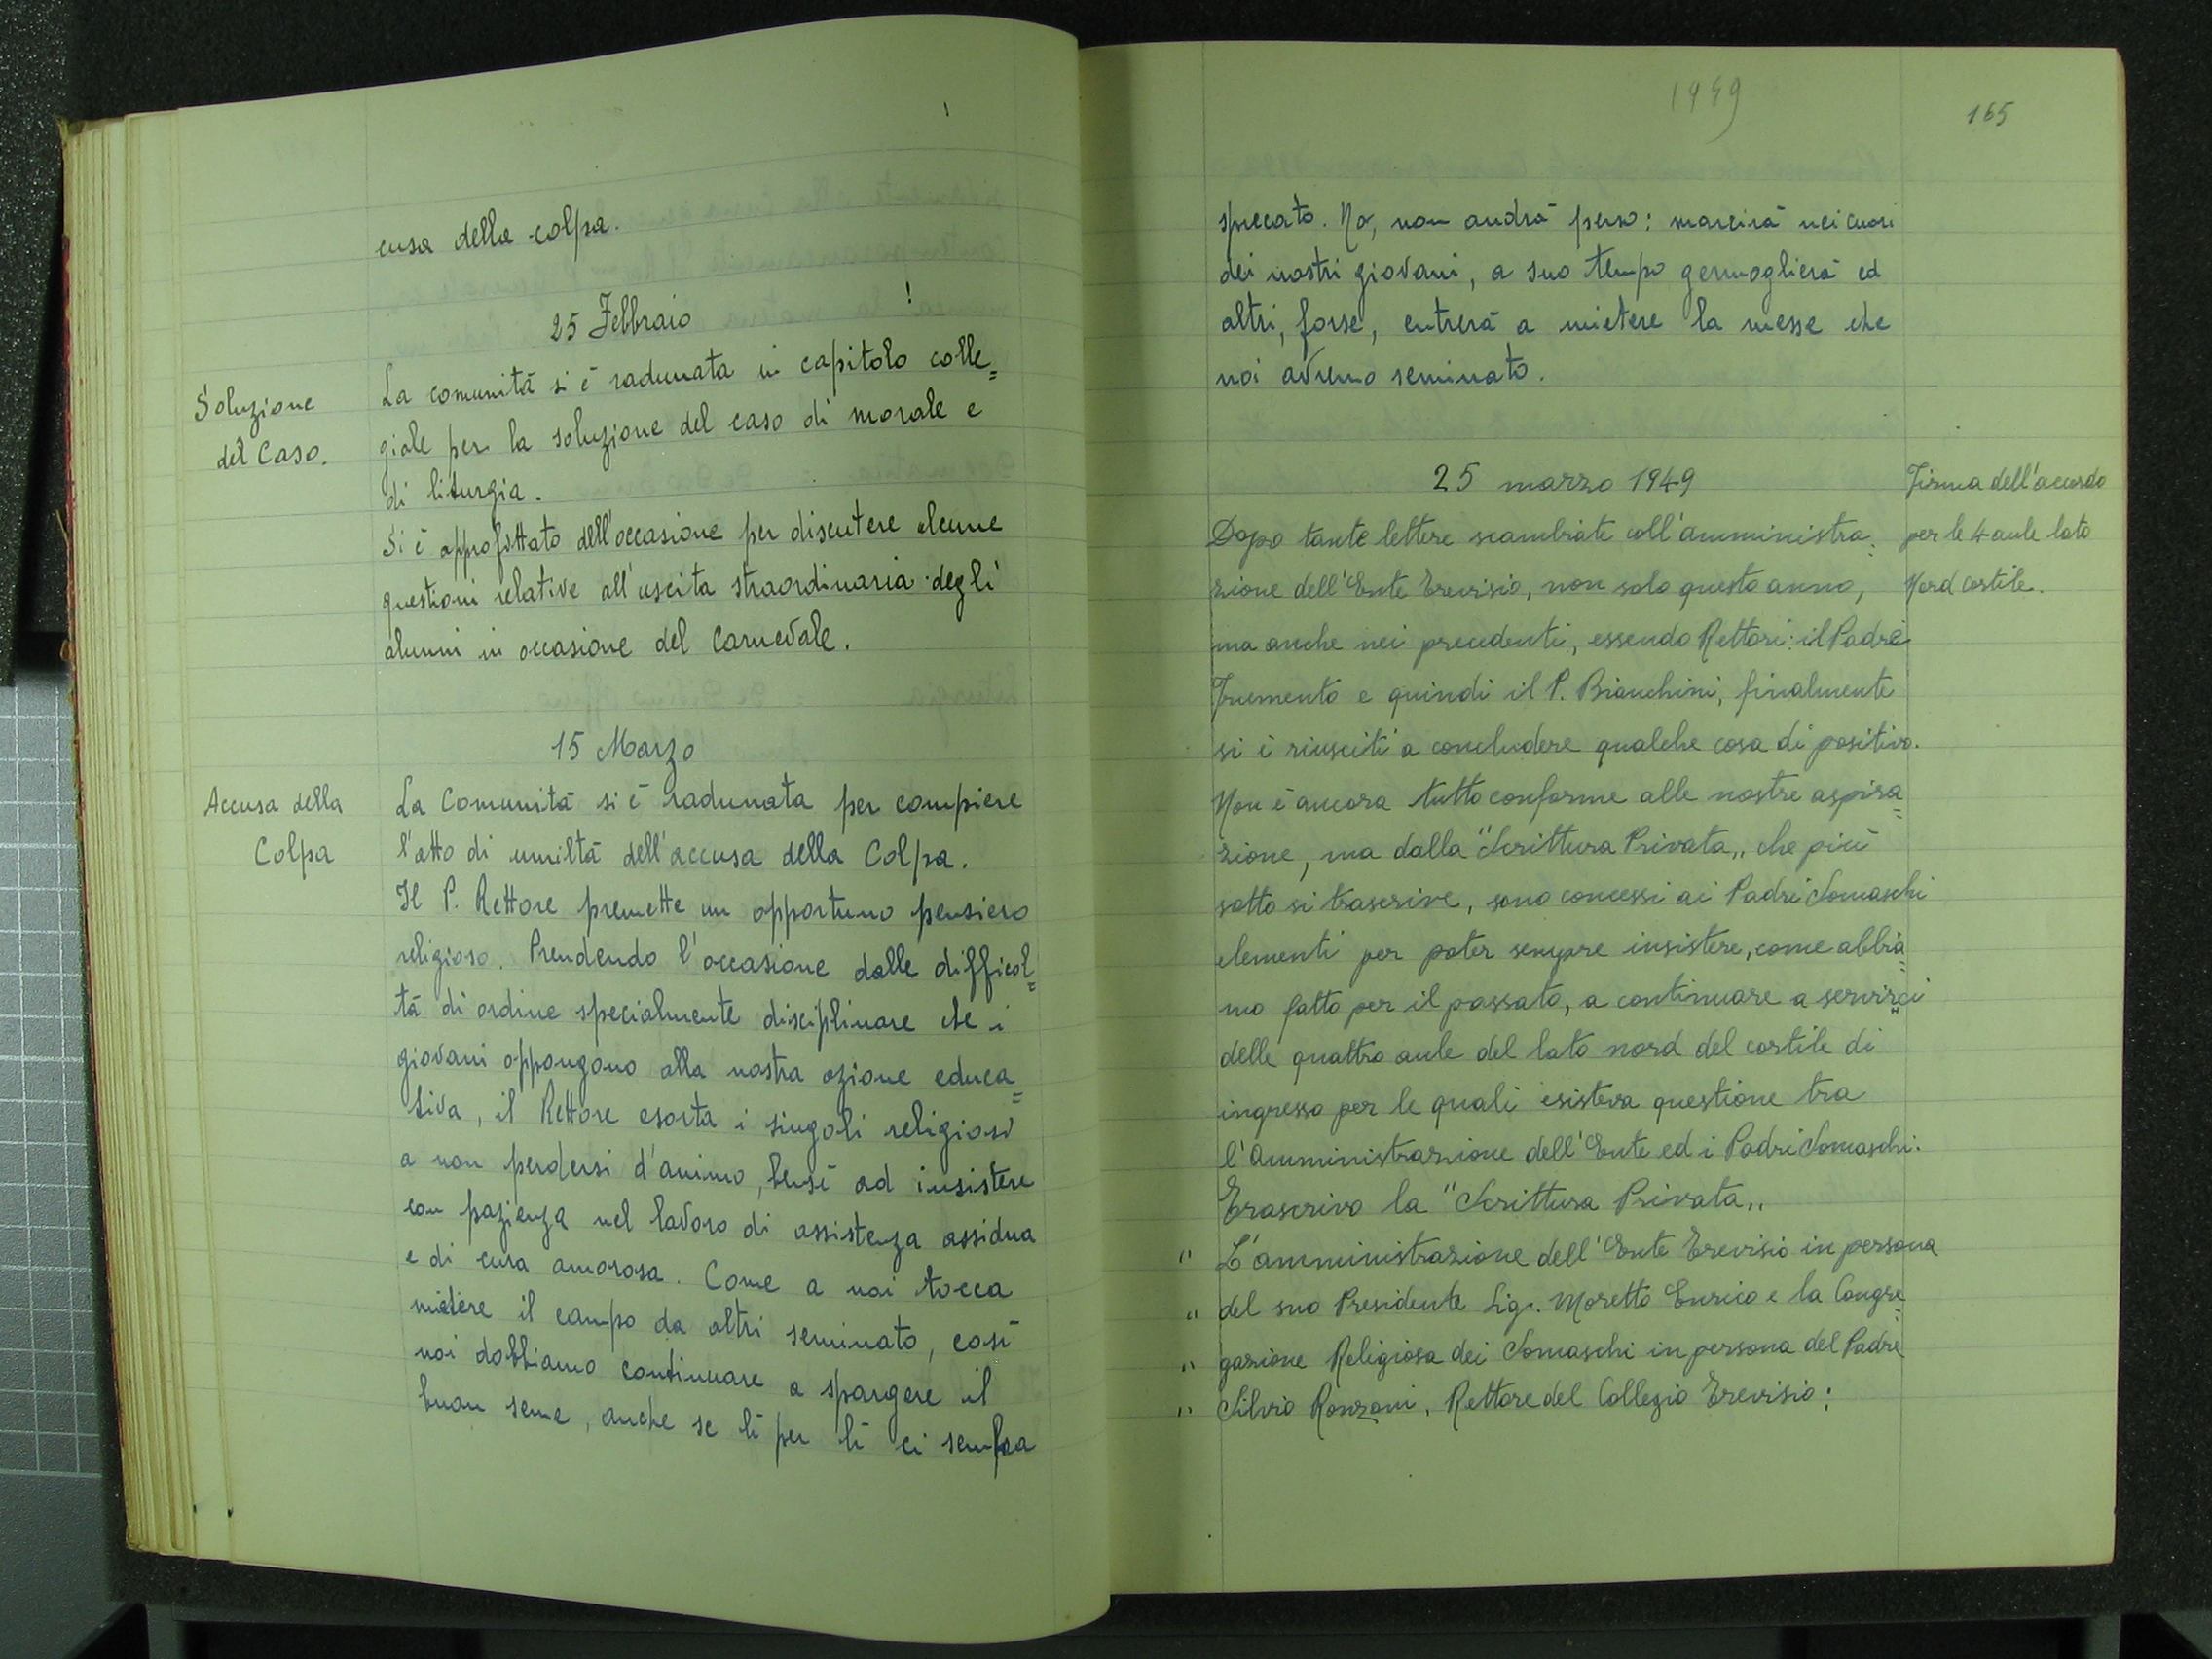 cusa della colpa.
25 Febbraio
Soluzione
del Caso.
La comunità si è radunata in capitolo colle=
giale per la soluzione del caso di morale e
di liturgia.
Si è approfittato dell'occasione per discutere alcune
questioni relative all'uscita straordinaria degli
alunni in occasione del Carnevale.
15 Marzo
Accusa della
Colpa
La Comunità si è radunata per compiere
l'atto di umiltà dell'accusa della Colpa.
Il P. Rettore premette un opportuno pensiero
religioso. Prendendo l'occasione dalle difficol=
tà di ordine specialmente disciplinare che i
giovani oppongono alla nostra azione educa=
tiva, il Rettore esorta i singoli religiosi
a non perdersi d'animo, bensì ad insistere
con pazienza nel lavoro di assistenza assidua
e di cura amorosa. Come a noi tocca
mietere il campo da altri seminato, così
noi dobbiamo continuare a spargere il
buon seme, anche se lì per lì ci sembra
1949
165
sprecato. No, non andrà perso: marcirà nei cuori
dei nostri giovani, a suo tempo germoglierà ed
altri, forse, entrerà a mietere la messe che
noi avremo seminato.
25 marzo 1949
Firma dell'accordo
per le 4 aule lato
Nord cortile.
Dopo tante lettere scambiate coll'amministra=
zione dell'Ente Trevisio, non solo questo anno,
ma anche nei precedenti, essendo Rettori: il Padre
Frumento e quindi il P. Bianchini, finalmente
si è riusciti a concludere qualche cosa di positivo.
Non è ancora tutto conforme alle nostre aspira=
zione, ma dalla "Scrittura Privata„ che più
sotto si trascrive, sono concessi ai Padri Somaschi
elementi per poter sempre insistere, come abbia=
mo fatto per il passato, a continuare a servirci
delle quattro aule del lato nord del cortile di
ingresso per le quali esisteva questione tra
l'amministrazione dell'Ente ed i Padri Somaschi.
Trascrivo la "Scrittura Privata„
" L'amministrazione dell'Ente Trevisio in persona
" del suo Presidente Sig. Moretto Enrico e la Congre=
" gazione Religiosa dei Somaschi in persona del Padre
" Silvio Ronzoni, Rettore del Collegio Trevisio: